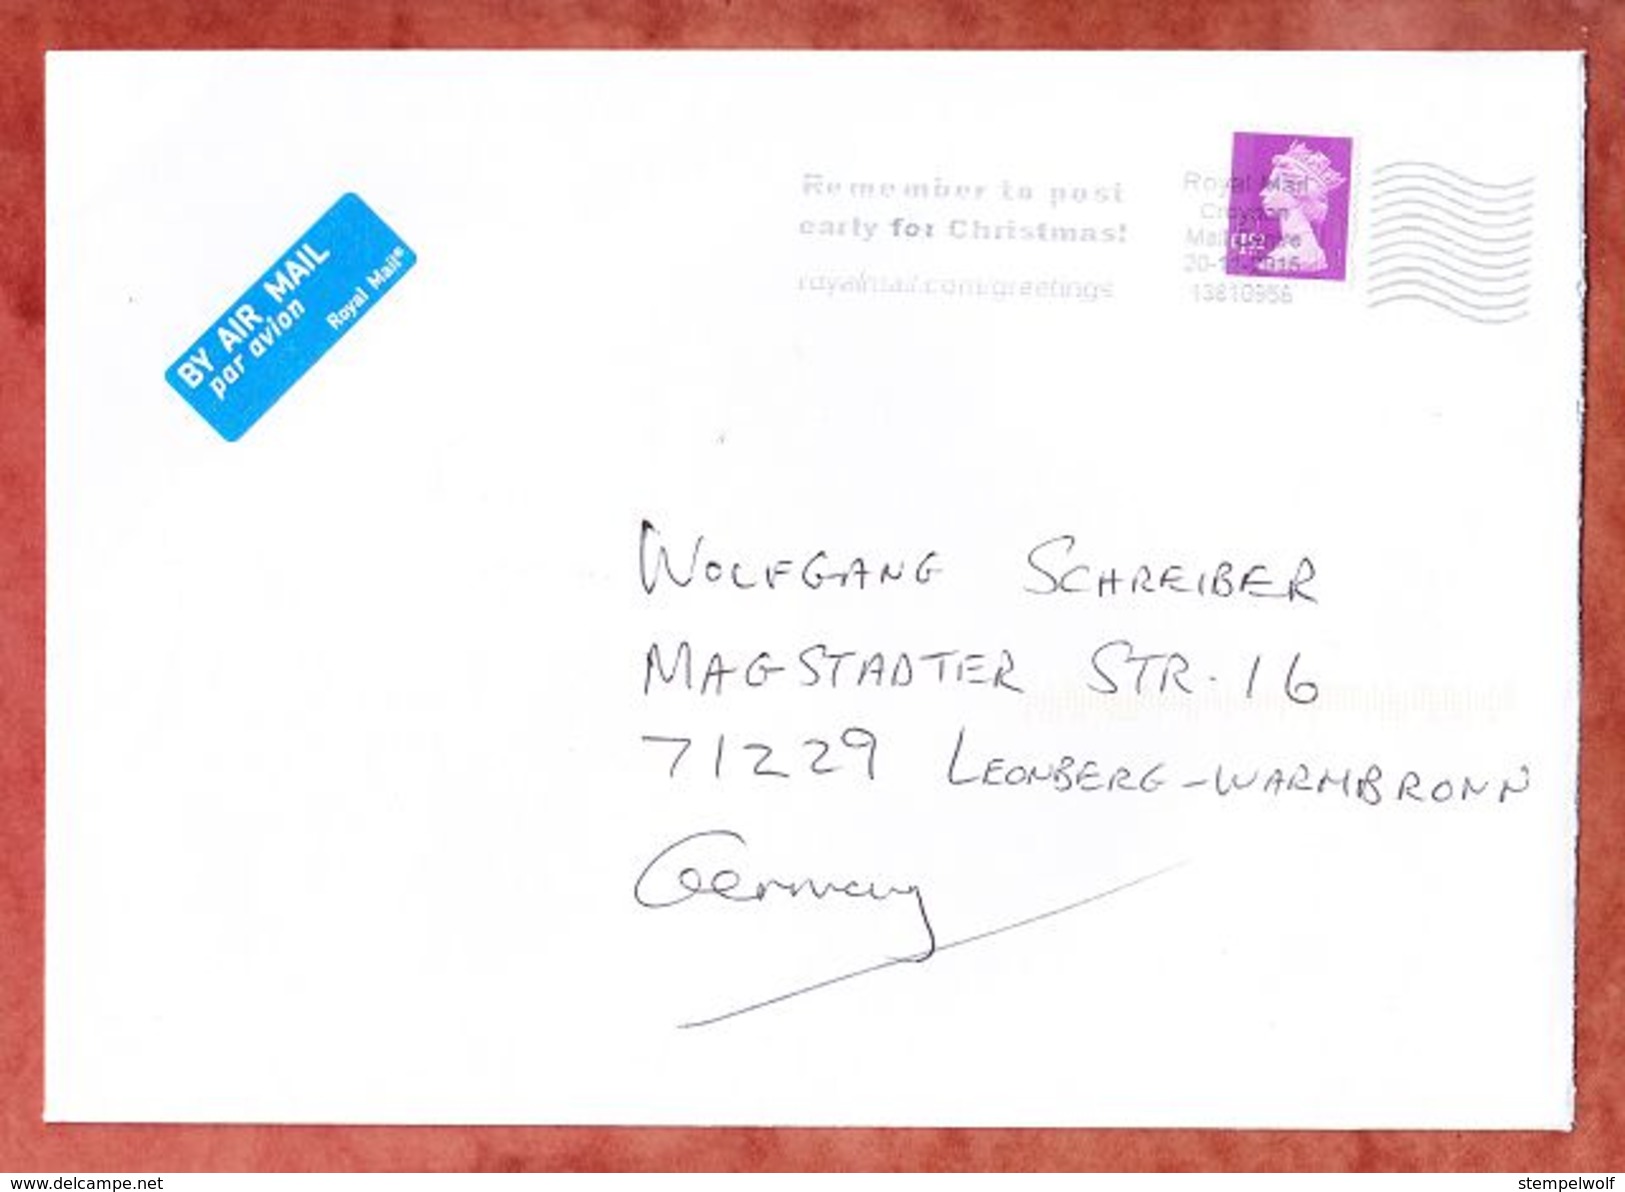 Remember to post
early for Christmas!
royalmail.com/greetings
Royal Mail
Croydon
Mail Centre
13810956
BY AIR MAIL
par avion
Royal Mail®
WOLFGANG SCHREIBER
MAGSTADTER STR. 16
71229 LEONBERG-WARMBRONN
Germany
www.delcampe.net
stempelwolf